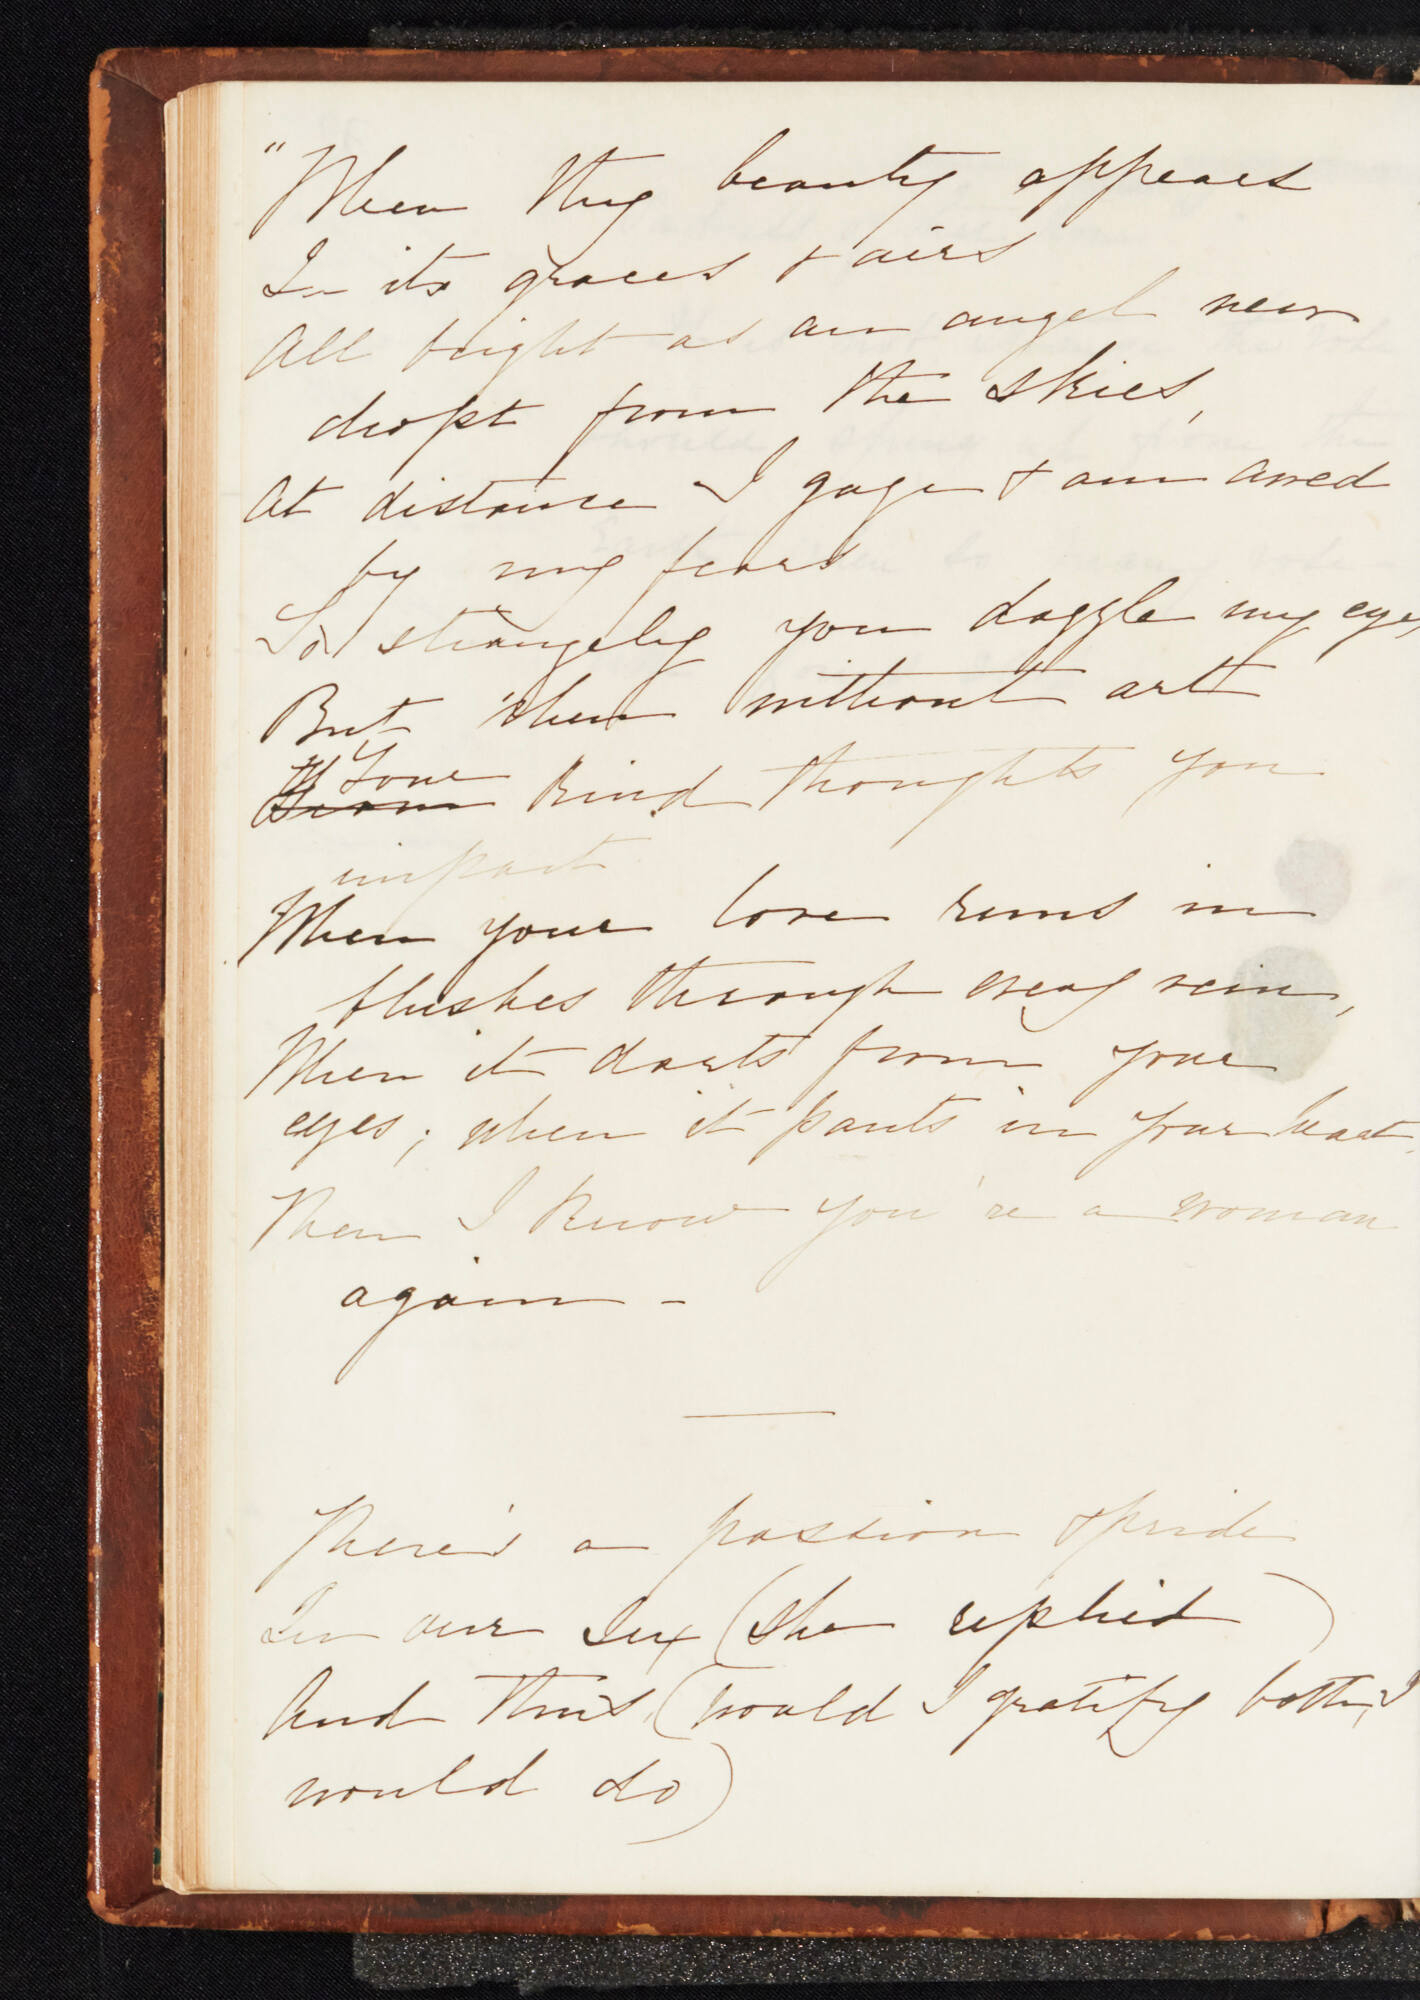 "When thy beauty appears
In its graces & airs
All bright as an angel new
dropt from the skies,
At distance I gaze & am awed
by my fears
So strangely you dazzle my eyes,
But when without art
Your kind thoughts you
impart
When your love runs in
blushes through every vein,
When it darts from your
eyes; when it pants in your heart,
Then I know you're a woman
again -
There's a passion & pride
In our sex (she replied)
And thus, (would I gratify both, I
would do)